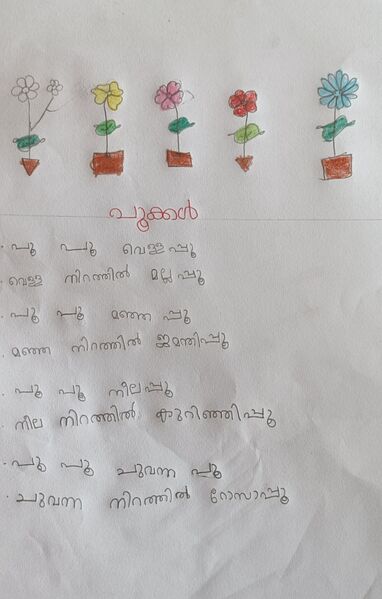 പൂക്കൾ
പൂ പൂ വെള്ളപ്പൂ
വെള്ള നിറത്തിൽ മുല്ലപ്പൂ
പൂ പൂ മഞ്ഞ പൂ
മഞ്ഞ നിറത്തിൽ ജമന്തിപ്പൂ
പൂ പൂ നീലപ്പൂ
നീല നിറത്തിൽ കുറിഞ്ഞിപ്പൂ
പൂ പൂ ചുവന്ന പൂ
ചുവന്ന നിറത്തിൽ റോസാപ്പൂ